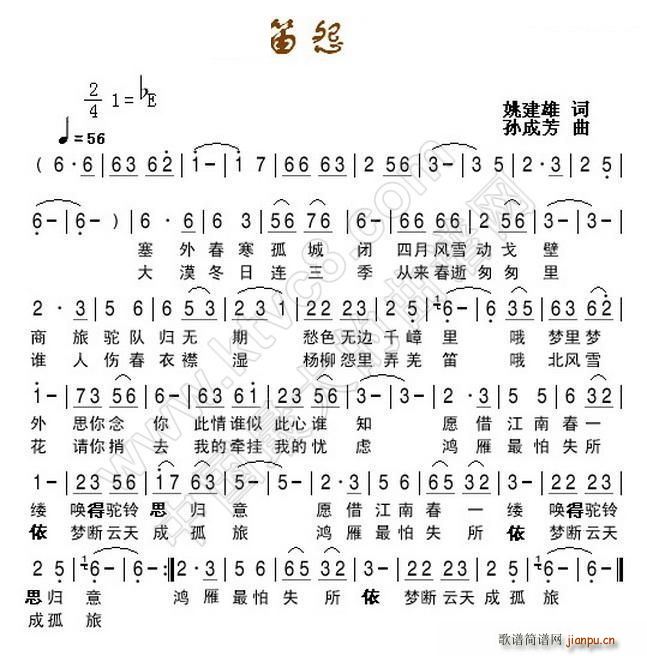 笛怨
2/4 1=♭E
姚建雄 词
♩=56
孙成芳 曲
( 6·6 | 63 62 | 1-| 1 7 | 66 63 | 2 56 | 3-| 3-| 3 5 | 2·3 | 2 5 |
6-| 6-) | 6· 6 | 6 3 | 56 76 | 6- | 66 66 | 2 56 | 3-| 3-|
塞 外 春 寒 孤 城 闭 四月 风雪 动 戈 壁
大 漠 冬 日 连 三 季 从来 春逝 匆 匆 里
2·3 | 5 6 | 6 53 | 2 31 | 22 23 | 2 35 | 6-| 6 35 | 63 62 |
商 旅 驼 队 归 无 期 愁色 无边 千 嶂 里 哦 梦里 梦
谁 人 伤 春 衣 襟 湿 杨柳 怨里 弄 羌 笛 哦 北风 雪
1-| 73 56 | 3-| 22 35 | 17 63 | 5-| 2·3 | 2 5 | 6 32 |
外 思你 念 你 此情 谁似 此心 谁 知 愿 借 江 南 春 一
花 请你 捎 去 我的 牵挂 我的 忧 虑 鸿 雁 最 怕 失 所
1-| 23 56 | 17 63 | 5-| 2·3 | 56 | 65 32 | 3-| 23 56 |
缕 唤得 驼铃 思 归 意 愿 借 江 南 春 一 缕 唤得 驼铃
依 梦断 云天 成 孤 旅 鸿 雁 最 怕 失 所 依 梦断 云天
2 5 | 6-| 6-:| 2·3 | 5 6 | 65 32 | 3-| 23 56 | 2 5 | 6-| 6-‖
思 归 意 鸿 雁 最 怕 失 所 依 梦断 云天 成 孤 旅
成 孤 旅
www.ktvc8.com
歌谱简谱网
jianpu.cn